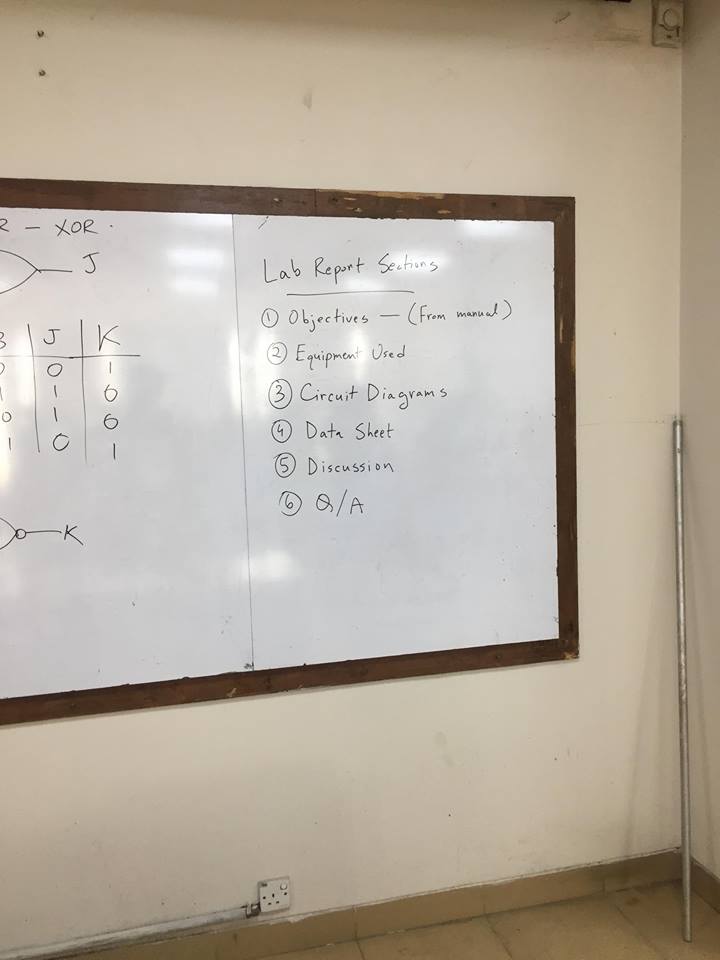 R - XOR.
J
B | J | K
0 | 0 | 1
1 | 1 | 0
0 | 1 | 0
1 | 0 | 1
K
Lab Report Sections
① Objectives — (From manual)
② Equipment Used
③ Circuit Diagrams
④ Data Sheet
⑤ Discussion
⑥ Q/A